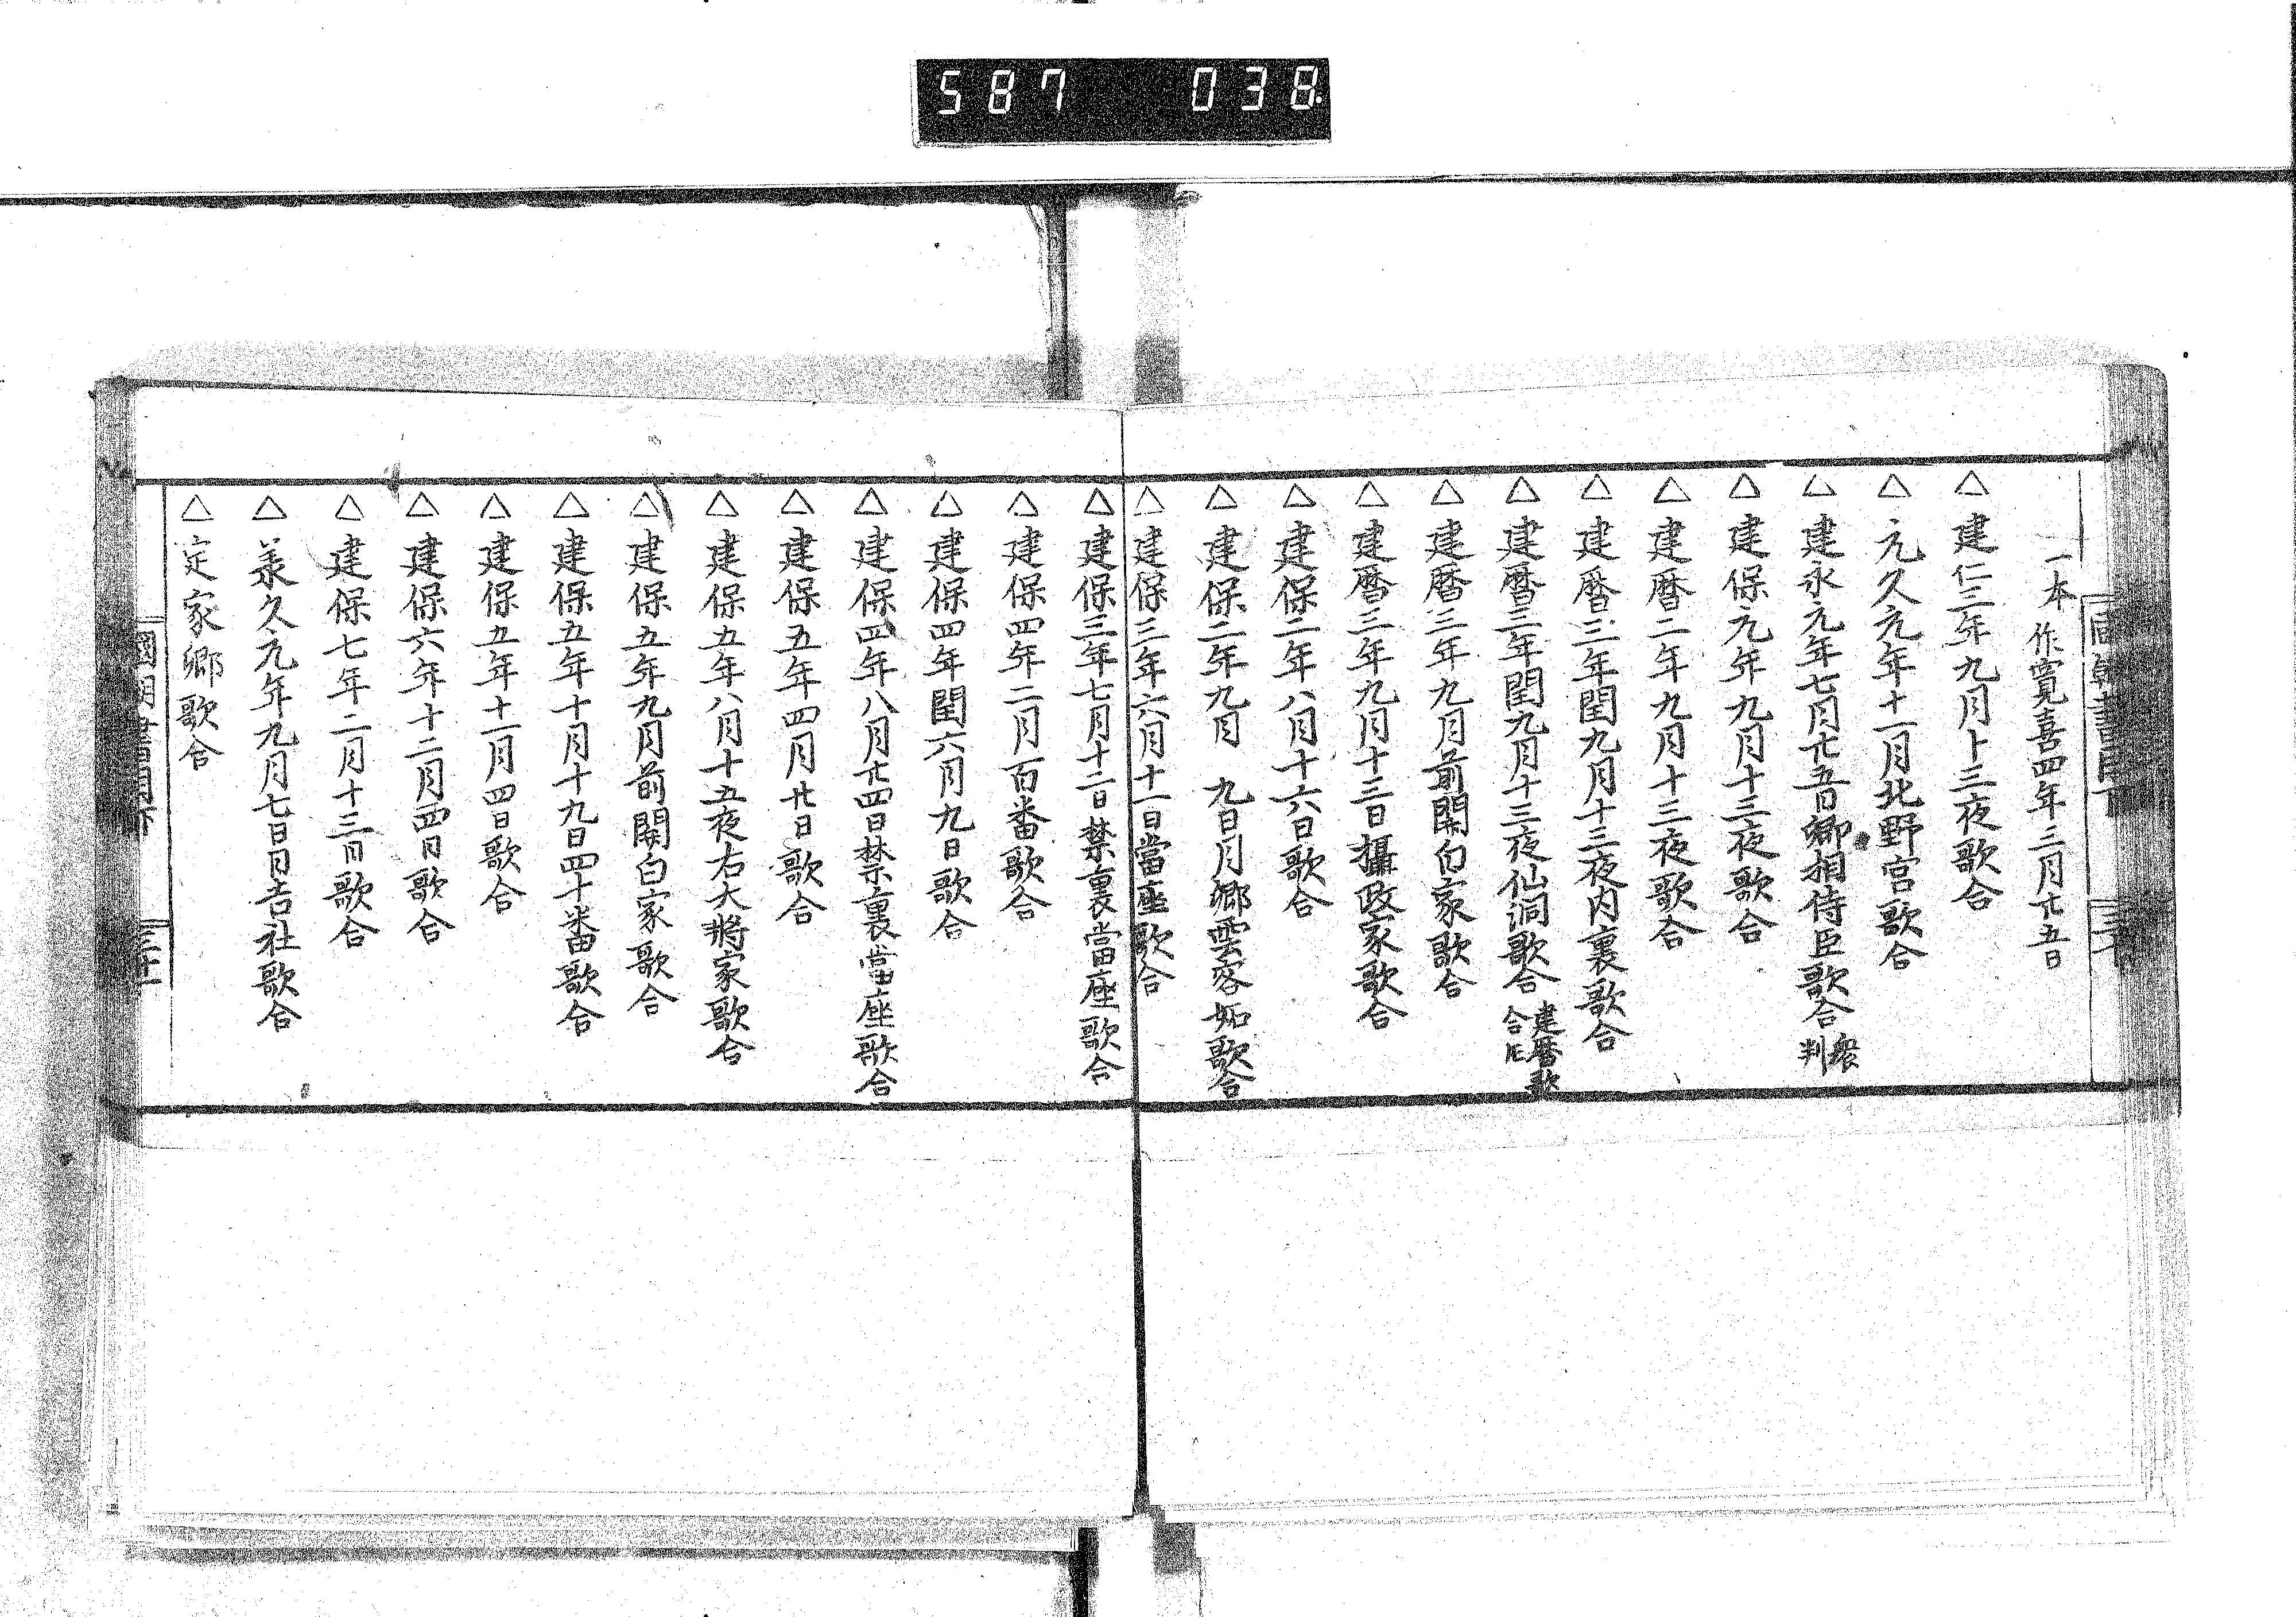 587 038
一本作寛喜四年三月廿五日
△建仁三年九月卜三夜歌合
△元久元年十一月北野宮歌合
△建永元年七月廿五日卿相侍臣歌合 衆判
△建保元年九月十三夜歌合
△建暦二年九月十三夜歌合
△建暦三年閏九月十三夜内裏歌合
△建暦三年閏九月十三夜仙洞歌合 建暦歌合
△建暦三年九月前關白家歌合
△建暦三年九月十三日攝政家歌合
△建保二年八月十六日歌合
△建保二年九月 九日月卿雲客妬歌合
△建保三年六月十一日當座歌合
△建保三年七月十二日禁裏當座歌合
△建保四年二月百番歌合
△建保四年閏六月九日歌合
△建保四年八月廿四日禁裏當座歌合
△建保五年四月廿日歌合
△建保五年八月十五夜右大將家歌合
△建保五年九月前關白家歌合
△建保五年十月十九日四十番歌合
△建保五年十一月四日歌合
△建保六年十二月四日歌合
△建保七年二月十三日歌合
△羕久元年九月七日日吉社歌合
△定家卿歌合